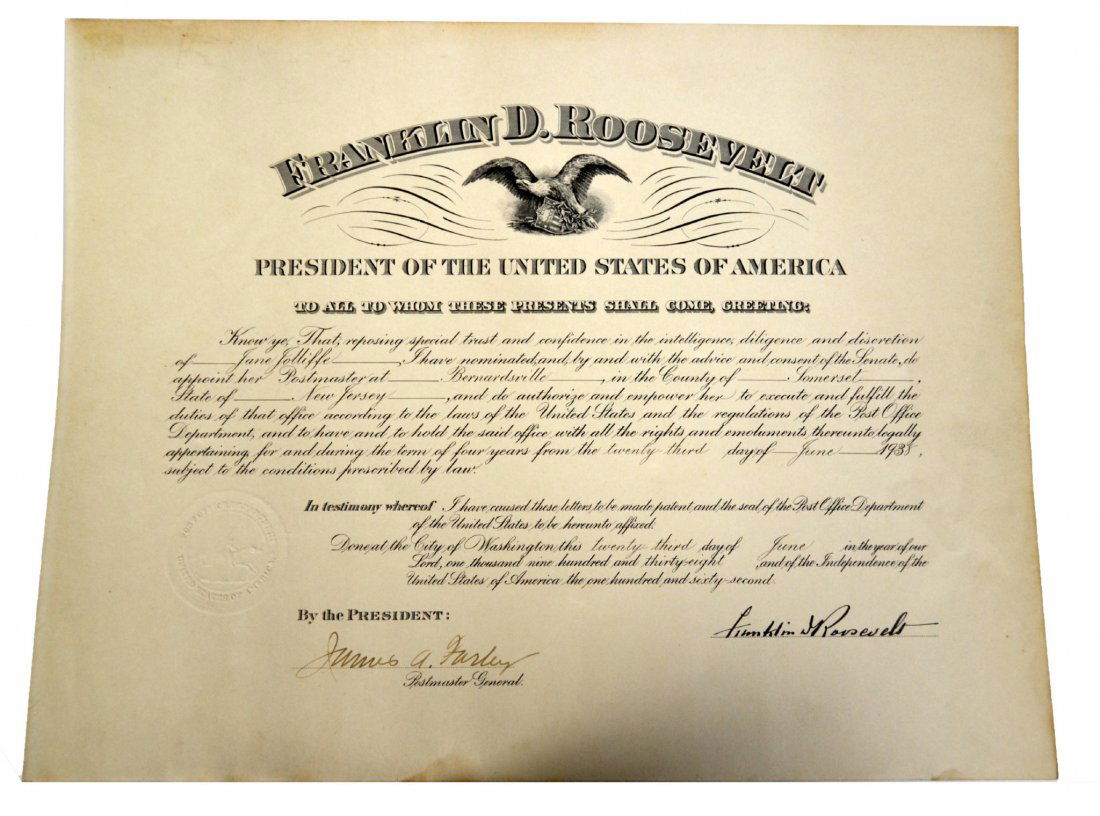 FRANKLIN D. ROOSEVELT
PRESIDENT OF THE UNITED STATES OF AMERICA
TO ALL TO WHOM THESE PRESENTS SHALL COME, GREETING:
Know ye, That, reposing special trust and confidence in the intelligence, diligence and discretion
of Jane Jolliffe, I have nominated, and, by and with the advice and consent of the Senate, do
appoint her Postmaster at Bernardsville, in the County of Somerset,
State of New Jersey, and do authorize and empower her to execute and fulfill the
duties of that office according to the laws of the United States and the regulations of the Post Office
Department, and to have and to hold the said office, with all the rights and emoluments thereunto legally
appertaining, for and during the term of four years from the twenty third day of June 1938,
subject to the conditions prescribed by law.
In testimony whereof I have caused these letters to be made patent and the seal of the Post Office Department
of the United States to be hereunto affixed.
Done at the City of Washington this twenty third day of June in the year of our
Lord, one thousand nine hundred and thirty-eight, and of the Independence of the
United States of America the one hundred and sixty-second.
By the PRESIDENT:
Franklin D Roosevelt
James A. Farley
Postmaster General.